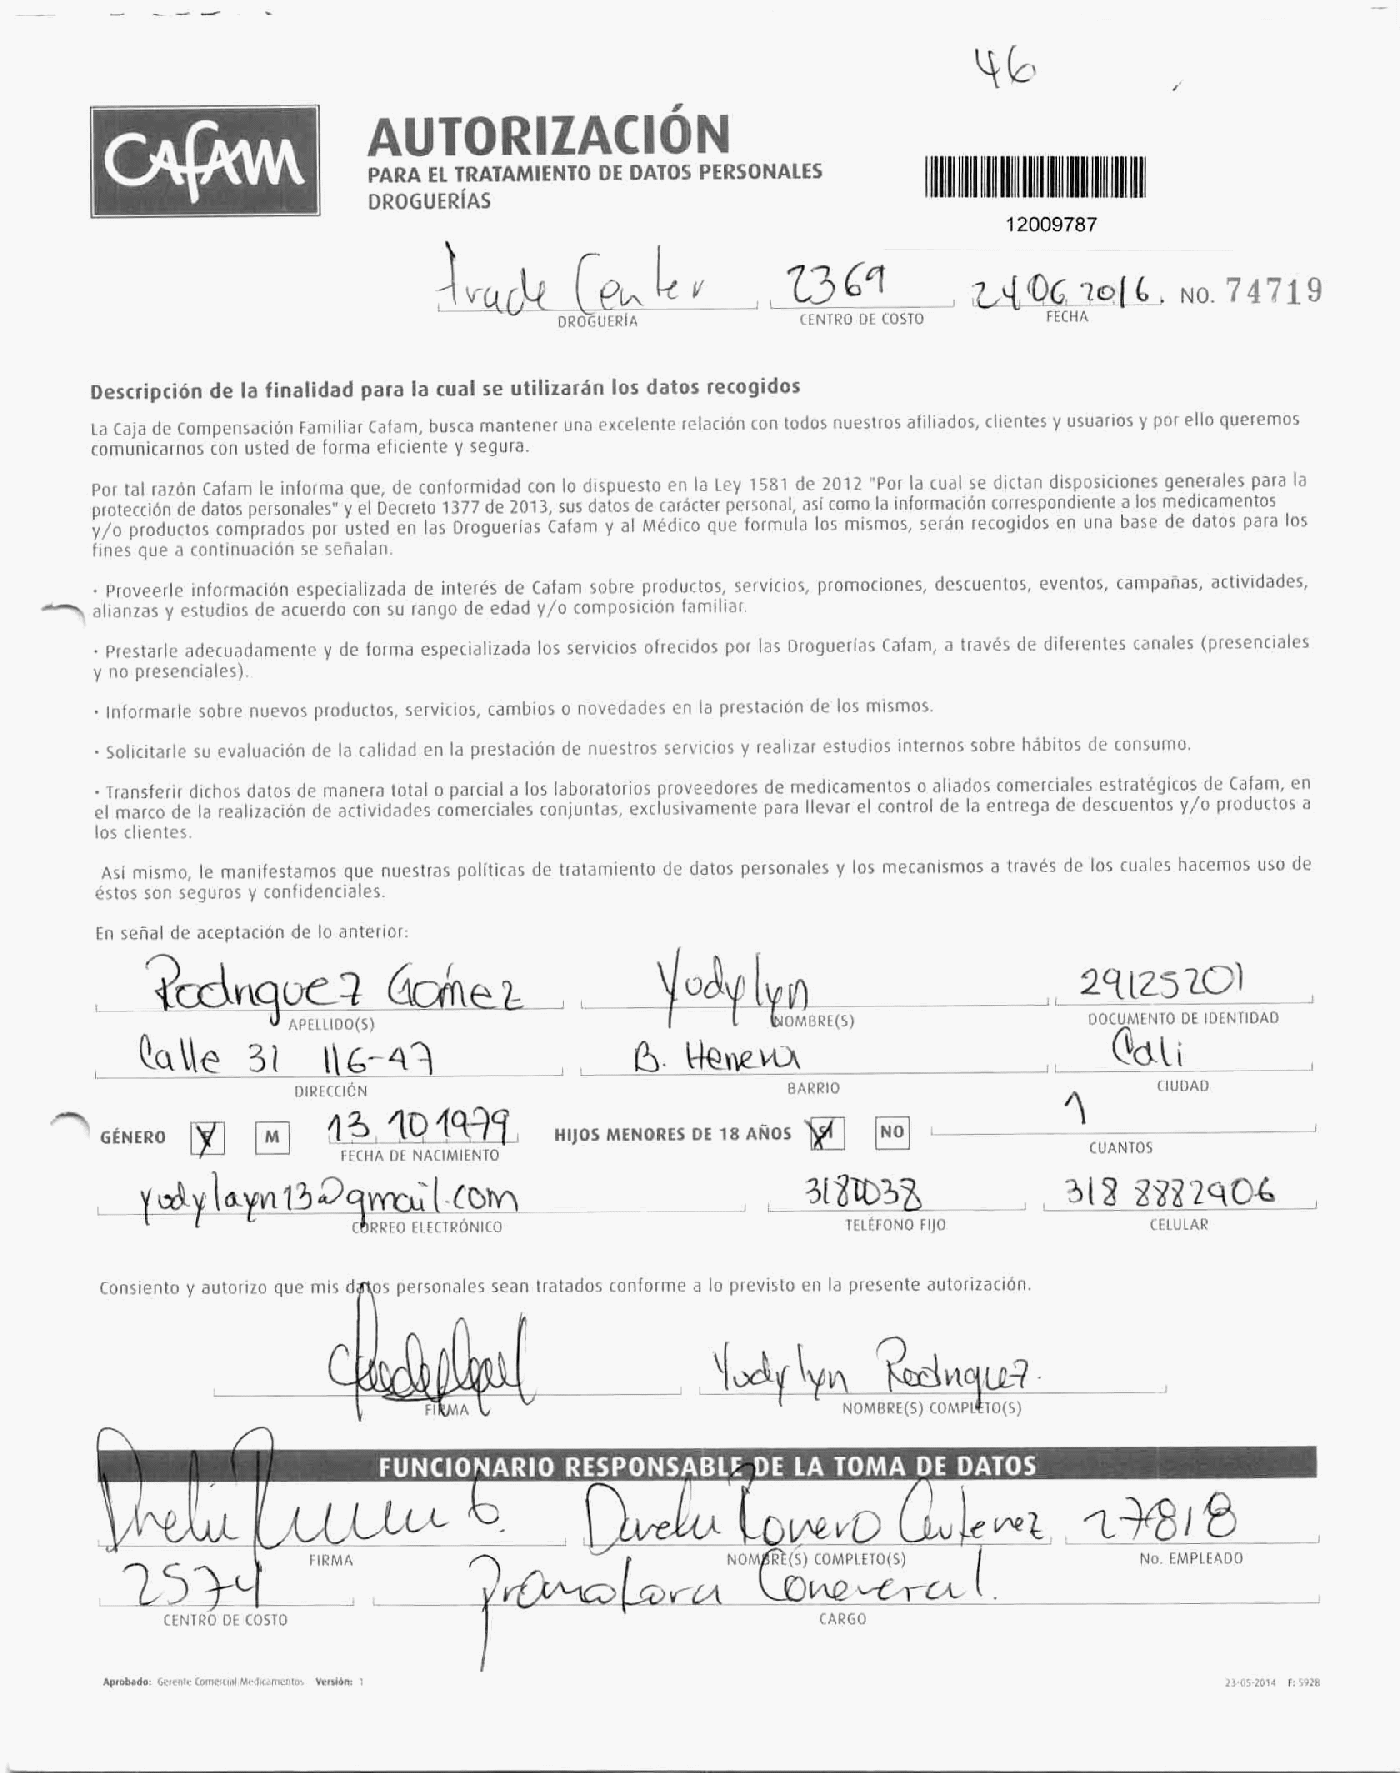 46
CAFAM
AUTORIZACIÓN
PARA EL TRATAMIENTO DE DATOS PERSONALES
DROGUERÍAS
12009787
Trade Center 2369 24 06 2016. NO. 74719
DROGUERÍA CENTRO DE COSTO FECHA
Descripción de la finalidad para la cual se utilizarán los datos recogidos
La Caja de Compensación Familiar Cafam, busca mantener una excelente relación con todos nuestros afiliados, clientes y usuarios y por ello queremos
comunicarnos con usted de forma eficiente y segura.
Por tal razón Cafam le informa que, de conformidad con lo dispuesto en la Ley 1581 de 2012 "Por la cual se dictan disposiciones generales para la
protección de datos personales" y el Decreto 1377 de 2013, sus datos de carácter personal, así como la información correspondiente a los medicamentos
y/o productos comprados por usted en las Droguerías Cafam y al Médico que formula los mismos, serán recogidos en una base de datos para los
fines que a continuación se señalan.
· Proveerle información especializada de interés de Cafam sobre productos, servicios, promociones, descuentos, eventos, campañas, actividades,
alianzas y estudios de acuerdo con su rango de edad y/o composición familiar.
· Prestarle adecuadamente y de forma especializada los servicios ofrecidos por las Droguerías Cafam, a través de diferentes canales (presenciales
y no presenciales).
· Informarle sobre nuevos productos, servicios, cambios o novedades en la prestación de los mismos.
· Solicitarle su evaluación de la calidad en la prestación de nuestros servicios y realizar estudios internos sobre hábitos de consumo.
· Transferir dichos datos de manera total o parcial a los laboratorios proveedores de medicamentos o aliados comerciales estratégicos de Cafam, en
el marco de la realización de actividades comerciales conjuntas, exclusivamente para llevar el control de la entrega de descuentos y/o productos a
los clientes.
Asi mismo, le manifestamos que nuestras políticas de tratamiento de datos personales y los mecanismos a través de los cuales hacemos uso de
éstos son seguros y confidenciales.
En señal de aceptación de lo anterior:
Rodriguez Gómez Yodylyn 29125201
APELLIDO(S) NOMBRE(S) DOCUMENTO DE IDENTIDAD
Calle 31 116-47 B. Herrera Cali
DIRECCIÓN BARRIO CIUDAD
GÉNERO M 13 10 1979 HIJOS MENORES DE 18 AÑOS SI NO 1
FECHA DE NACIMIENTO CUANTOS
yodylayn13@gmail.com 318 8882906
CORREO ELECTRÓNICO TELÉFONO FIJO CELULAR
Consiento y autorizo que mis datos personales sean tratados conforme a lo previsto en la presente autorización.
Yodylyn Rodriguez.
FIRMA NOMBRE(S) COMPLETO(S)
FUNCIONARIO RESPONSABLE DE LA TOMA DE DATOS
Romero Gutierrez 27818
FIRMA NOMBRE(S) COMPLETO(S) No. EMPLEADO
2574 Promotora Comercial.
CENTRO DE COSTO CARGO
Aprobado: Gerente Comercial Medicamentos Versión: 1 23-05-2014 F: 5928